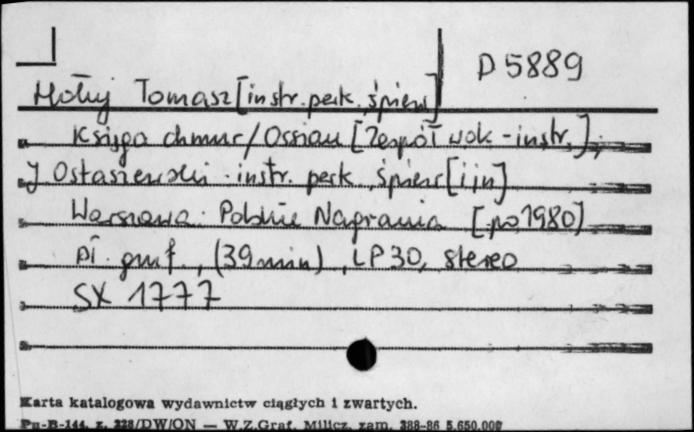 D 5889
Hołuj Tomasz [instr. perk., śpiew]
Księga chmur / Ossian [Zespół wok.-instr.];
J Ostaszewski instr. perk, śpiew [i in]
Warszawa: Polskie Nagrania [po 1980]
pł. gmf., (39 min), LP 30, stereo
SX 1777
Karta katalogowa wydawnictw ciągłych i zwartych.
Pu-B-144, z. 228/DW/ON — W.Z.Graf. Milicz, zam. 388-86 5.650.000